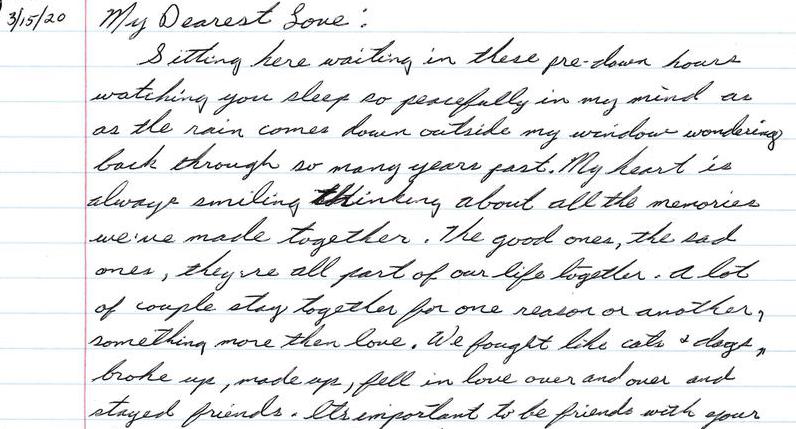 3/15/20 My Dearest Love:
Sitting here waiting in these pre-dawn hours
watching you sleep so peacefully in my mind as
as the rain comes down outside my window wondering
back through so many years past. My heart is
always smiling thinking about all the memories
we've made together. The good ones, the sad
ones, they're all part of our life together. A lot
of couple stay together for one reason or another,
something more then love. We fought like cats & dogs,
broke up, made up, fell in love over and over and
stayed friends. Its important to be friends with your